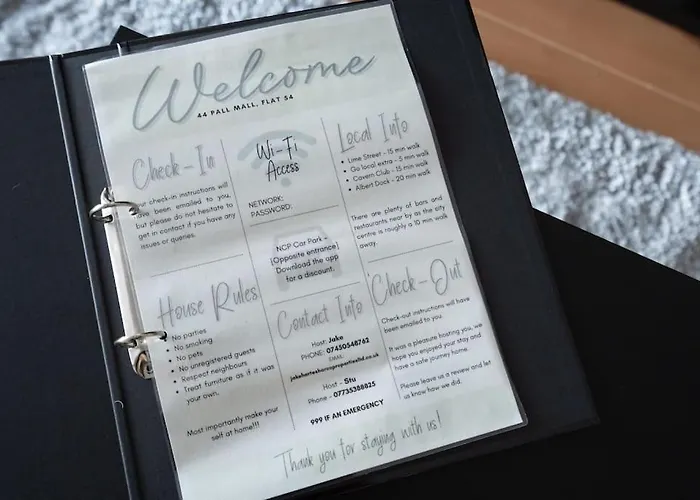 Welcome
44 PALL MALL, FLAT 54
Check-In
our check-in instructions will
have been emailed to you,
but please do not hesitate to
get in contact if you have any
issues or queries.
Wi-Fi
Access
NETWORK:
PASSWORD:
NCP Car Park -
(Opposite entrance)
Download the app
for a discount.
Local Info
• Lime Street - 15 min walk
• Go local extra - 5 min walk
• Cavern Club - 15 min walk
• Albert Dock - 20 min walk
There are plenty of bars and
restaurants near by as the city
centre is roughly a 10 min walk
away.
House Rules
• No parties
• No smoking
• No pets
• No unregistered guests
• Respect neighbours
• Treat furniture as if it was
your own.
Most importantly make your
self at home!!!
Contact Info
Host: Jake
PHONE: 07450548762
EMAIL:
Host - Stu
Phone - 07735388825
999 IF AN EMERGENCY
Check-Out
Check-out instructions will have
been emailed to you.
It was a pleasure hosting you, we
hope you enjoyed your stay and
have a safe journey home.
Please leave us a review and let
us know how we did.
Thank you for staying with us!